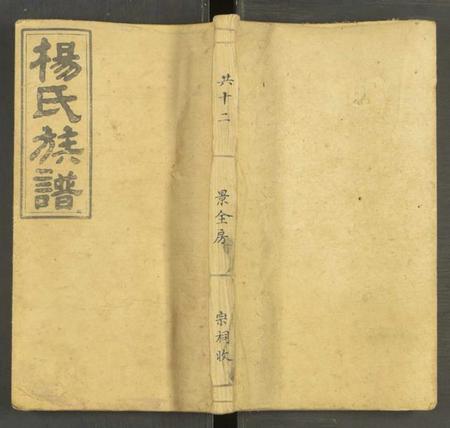 楊氏族譜
共十二
景全房
宗祠收